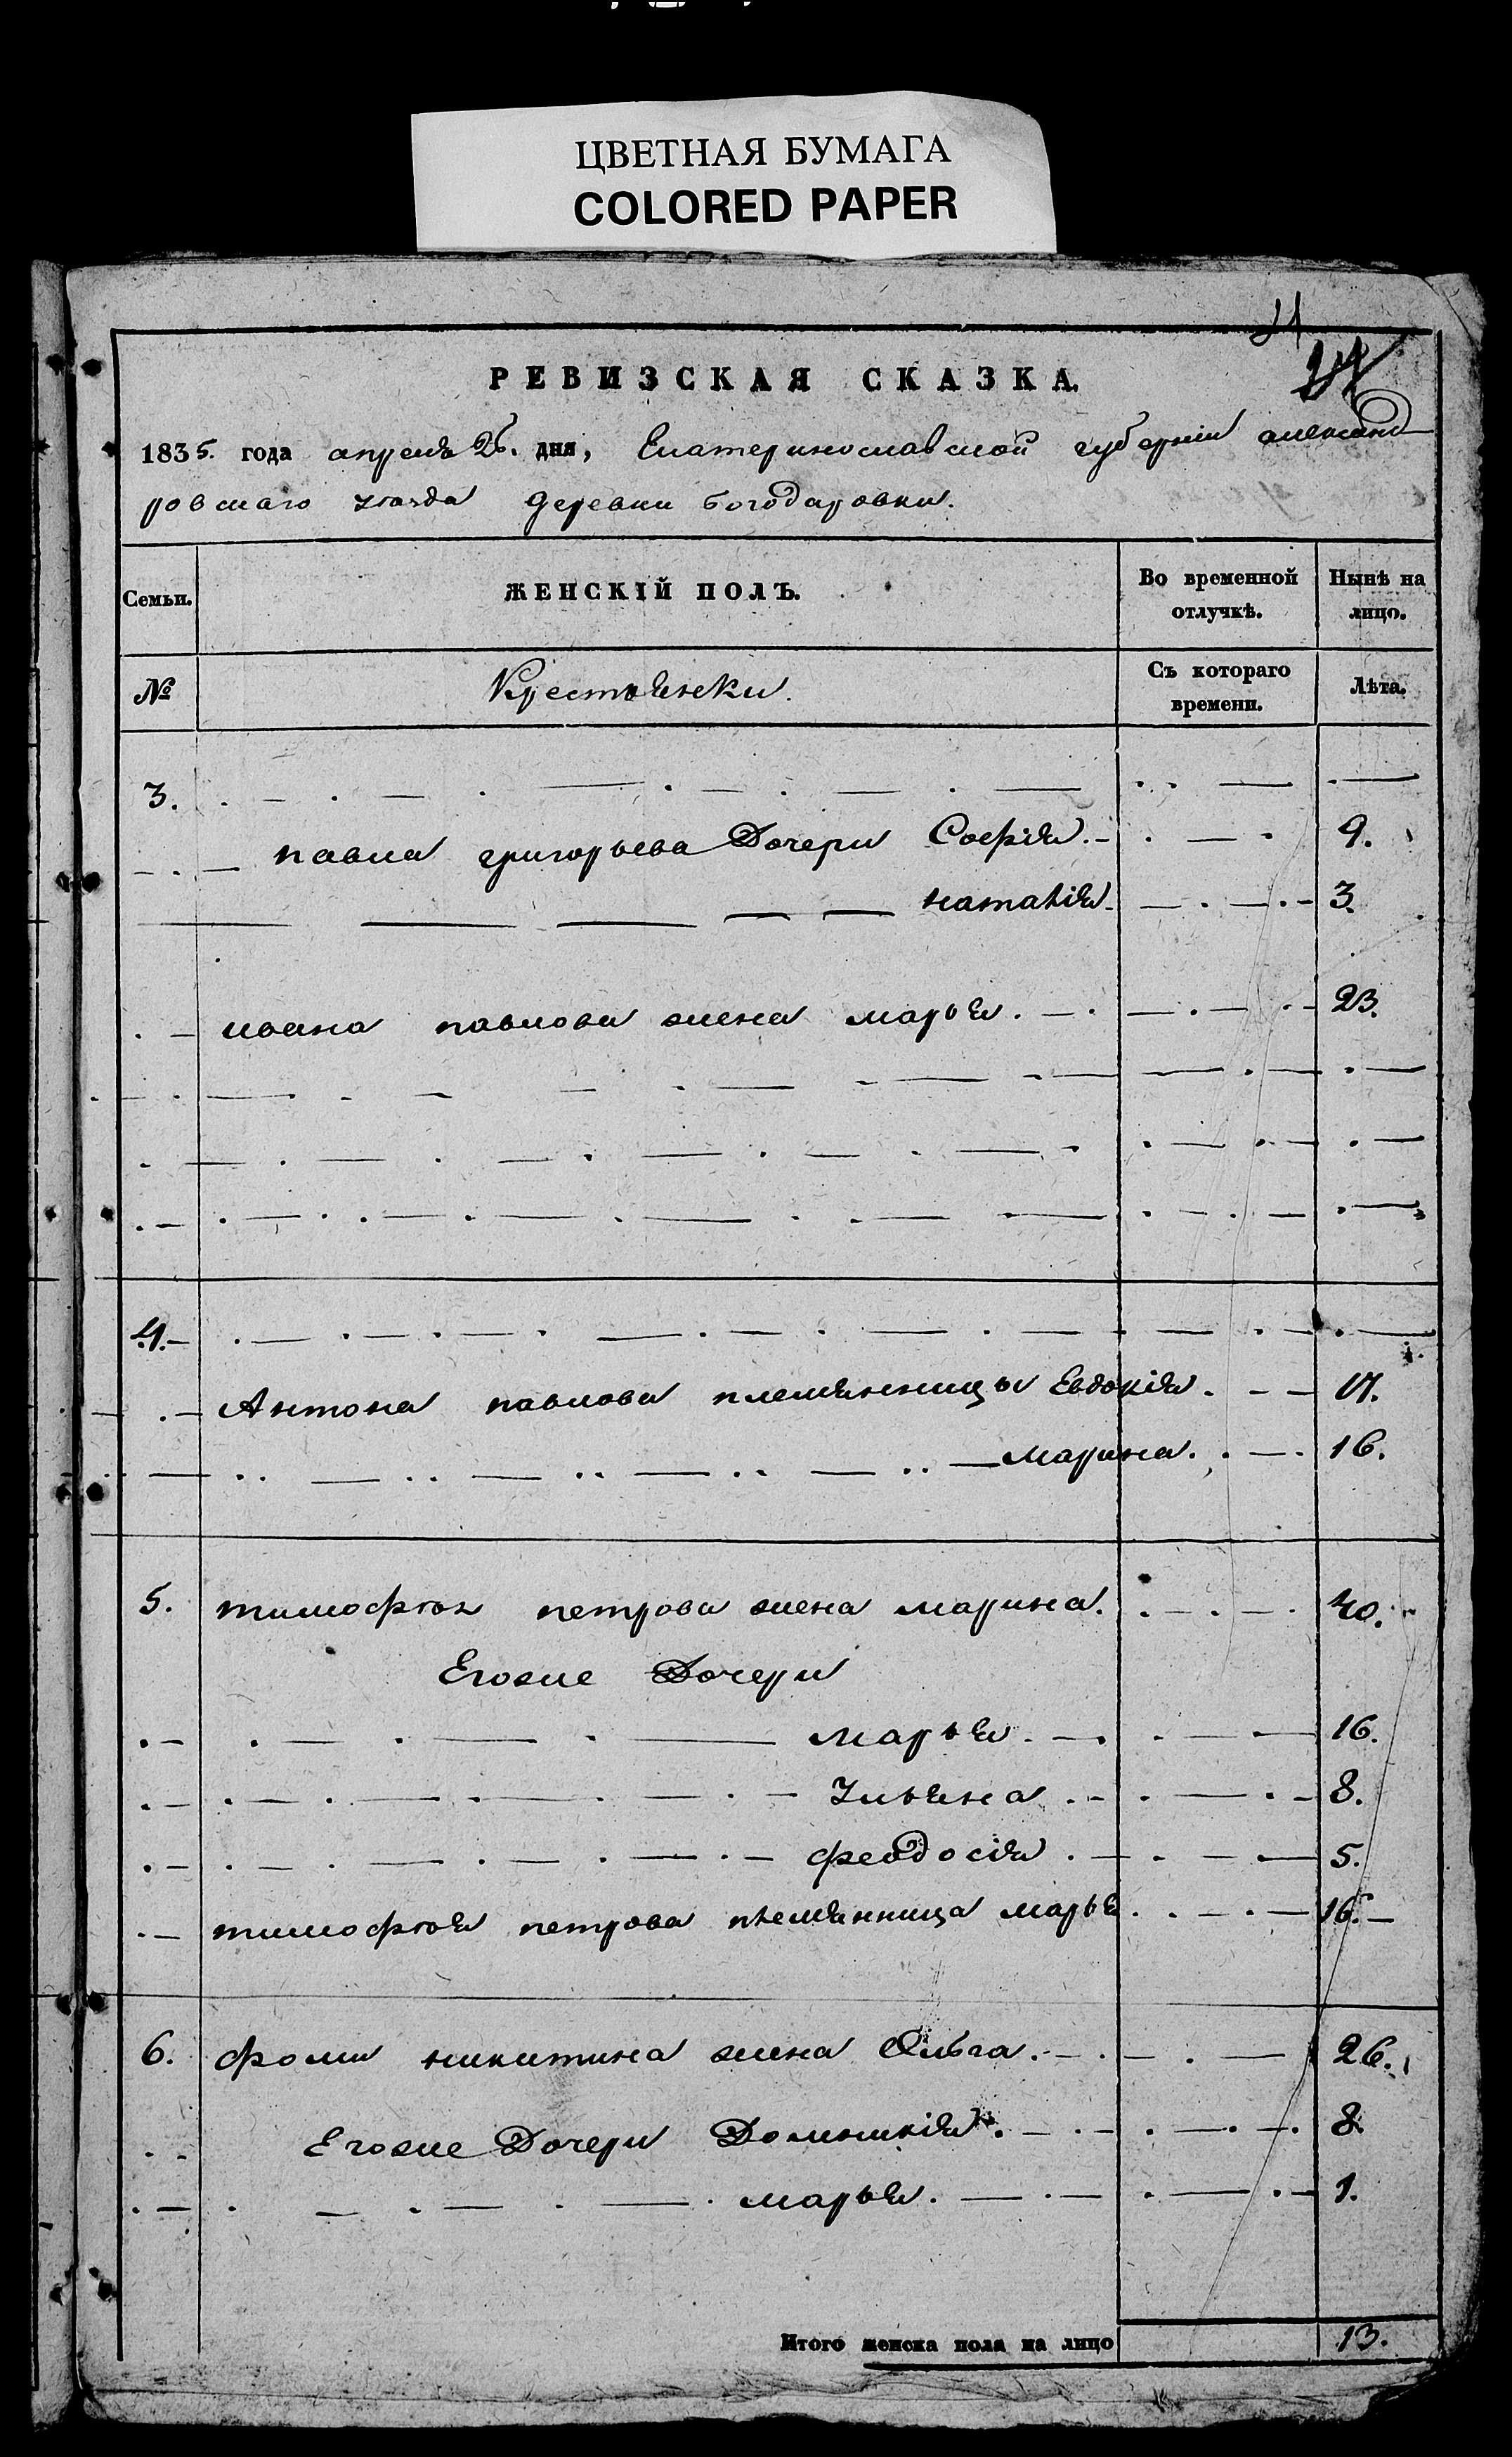 ЦВЕТНАЯ БУМАГА
COLORED PAPER
21
РЕВИЗСКАЯ СКАЗКА.
1835. года апреля 26. дня, Екатеринославской губерніи александ
ровскаго уѣзда деревни богодаровки.
Семьи. ЖЕНСКІЙ ПОЛЪ. Во временной отлучкѣ. Нынѣ на лицо.
№ Крестьянки. Съ котораго времени. Лѣта.
3.
павла григорьева Дочери Софія. 9.
наталія 3.
ивана павлова жена марья. 23.
4.
Антона павлова племянницы Евдокія. 17.
марина. 16.
5. тимофѣя петрова жена марина. 40.
Егоже Дочери
марья. 16.
Ульяна. 8.
феодосія. 5.
тимофѣя петрова племянница марья. 16.
6. фомы никитина жена Ольга. 26.
Егоже Дочери Домникія. 8.
марья. 1.
Итого женска пола на лицо 13.